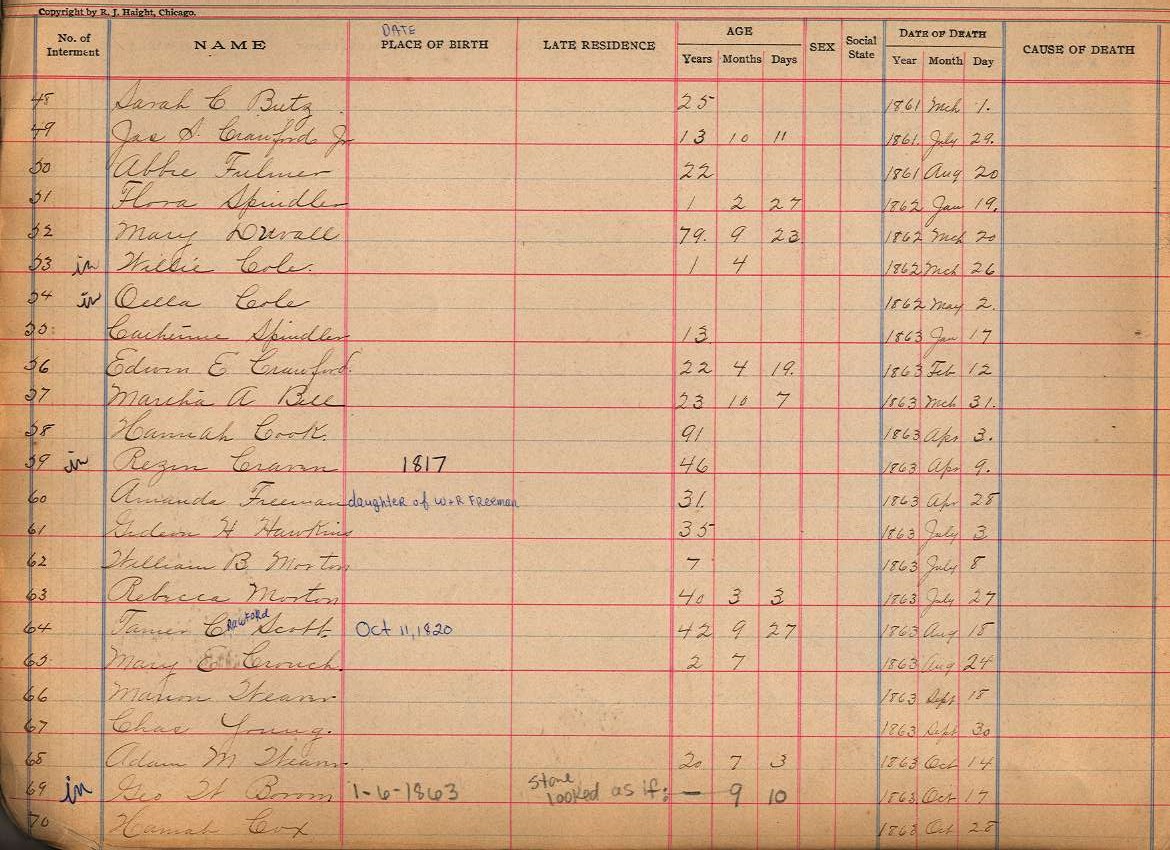 Copyright by R. J. Haight, Chicago.
No. of Interment NAME DATE PLACE OF BIRTH LATE RESIDENCE AGE Years Months Days SEX Social State DATE OF DEATH Year Month Day CAUSE OF DEATH
48 Sarah C Butz 25 1861 Mch 1.
49 Jas S. Crawford Jr 13 10 11 1861. July 29.
50 Abbie Fulmer 22 1861 Aug 20
51 Flora Spindler 1 2 27 1862 Jan 19.
52 Mary Duvall 79. 9 23 1862 Mch 20
53 in Willie Cole. 1 4 1862 Mch 26
54 in Cole 1862 May 2.
55 Catherine Spindler 13. 1863 Jan 17
56 Edwin E Crawford. 22 4 19. 1863 Feb 12
57 Martha A Bell 23 10 7 1863 Mch 31.
58 Hannah Cook. 91 1863 Apr 3.
59 in Rezin Craven 1817 46 1863 Apr 9.
60 Amanda Freeman daughter of W+R Freeman 31. 1863 Apr 28
61 Gideon H Hawkins 35 1863 July 3
62 William B Morton 7 1863 July 8
63 Rebecca Morton 40 3 3 1863 July 27
64 Tamer Crawford Scott Oct 11, 1820 42 9 27 1863 Aug 18
65 Mary Crouch. 2 7 1863 Aug 24
66 Marion Weaver 1863 Sept 18
67 Chas Young. 1863 Sept 30
68 Adam M Weaver 20 7 3 1863 Oct 14
69 in Geo W Borom 1-6-1863 Stone looked as if: — 9 10 1863 Oct 17
70 Hannah Cox 1863 Oct 28